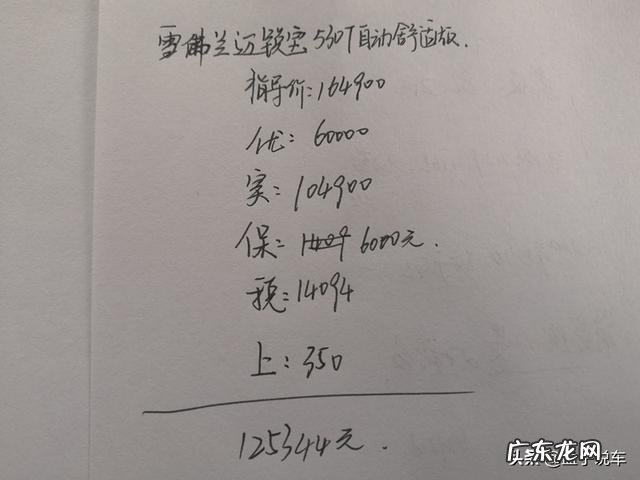 雪佛兰迈锐宝530T自动舒适版.
指导价:164900
优:60000
实:104900
保:6000元.
税:14094
上:350
125344元.
广东龙网
头条@孟子说车